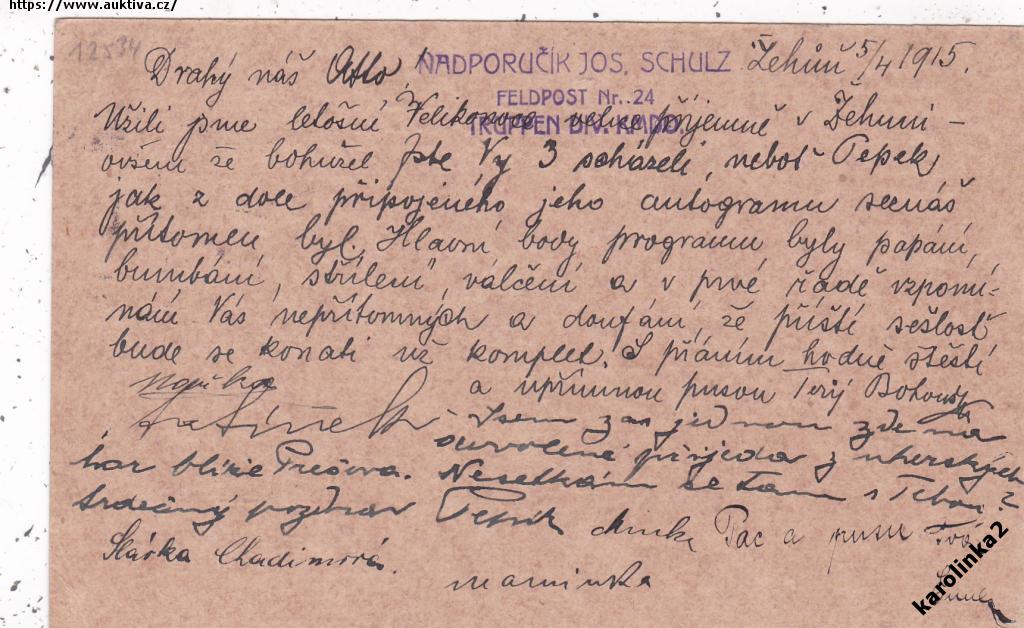 https://www.auktiva.cz/
12534
Drahý náš Otto! NADPORUČÍK JOS. SCHULZ Žehuň 5/4 1915.
FELDPOST Nr. 24
TRUPPEN DIV. KMDO.
Užili jsme letošní Velikonoce velmi příjemně v Žehuni –
ovšem že bohužel jste Vy 3 scházeli, neboť Pepek
jak z dole připojeného jeho autogramu seznáš
přítomen byl. Hlavní body programu byly papání,
bumbání, střílení, válčení a v prvé řadě vzpomí-
nání Vás nepřítomných a doufání, že příští sešlost
bude se konati už komplet. S přáním hodně štěstí
a upřímnou pusou Terý Bohouš
Jsem zas jednou zde na
dovolené přijeda z uherských
hor blíže Prešova. Nesetkám se tam s Tebou?
Srdečný pozdrav Pepík
Pac a pusu Tvá
Slávka Chadimová.
maminka
karolinka2